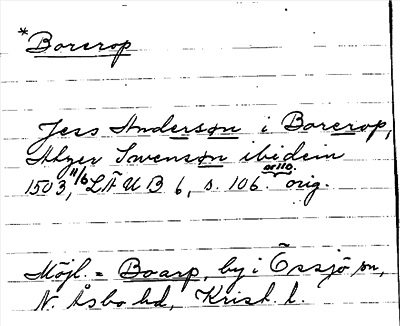 *Borcrop
Jess Anderson i Borcrop,
Asger Swenson ibidem
1503 11/6, LÄUB 6, s. 106. orig.
Möjl. = Boarp, by i Össjö sn,
N. Åsbo hd, Krist. l.